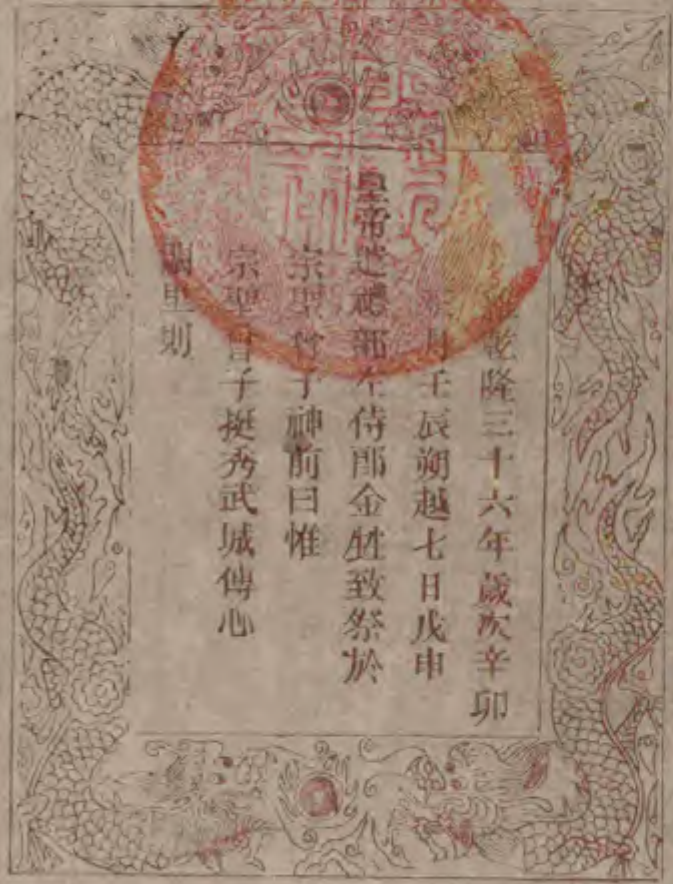 乾隆三十六年歲次辛卯
月壬辰朔越七日戊申
皇帝遣禮部左侍郎金甡致祭於
宗聖曾子神前曰惟
宗聖曾子挺秀武城傳心
闕里則